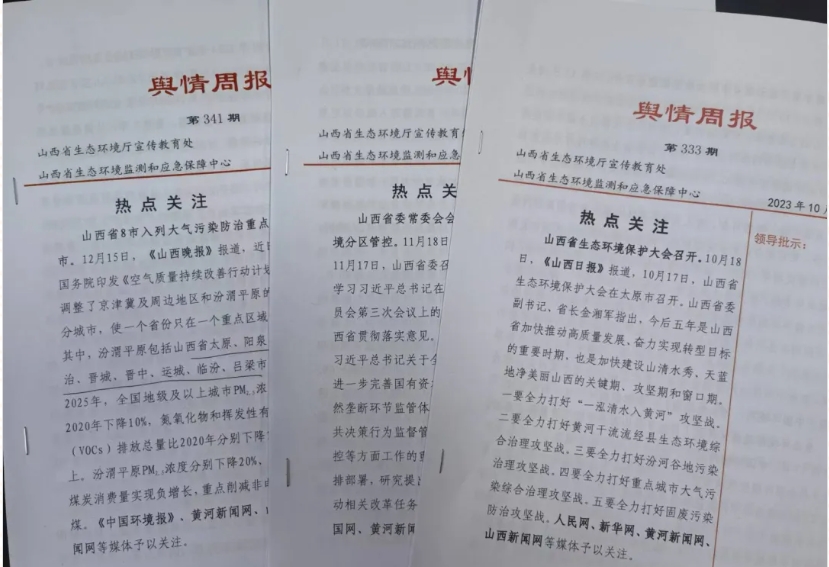 舆情周报
第 341 期
山西省生态环境厅宣传教育处
山西省生态环境监测和应急保障中心
热点关注
山西省8市入列大气污染防治重点
市。12月15日，《山西晚报》报道，近日
国务院印发《空气质量持续改善行动计划
调整了京津冀及周边地区和汾渭平原的
分城市，使一个省份只在一个重点区域
其中，汾渭平原包括山西省太原、阳泉
治、晋城、晋中、运城、临汾、吕梁市
2025年，全国地级及以上城市PM2.5浓
2020年下降10%，氮氧化物和挥发性有
（VOCs）排放总量比2020年分别下降
上。汾渭平原PM2.5浓度分别下降20%，
煤炭消费量实现负增长，重点削减非
煤。《中国环境报》、黄河新闻网、
闻网等媒体予以关注。
舆
山西省生态环境厅宣传教育
山西省生态环境监测和应急保
热点关
山西省委常委会会
境分区管控。11月18日
11月17日，山西省委召
学习习近平总书记在
员会第三次会议上的
西省贯彻落实意见。
习近平总书记关于全
进一步完善国有资
然垄断环节监管体
共决策行为监督管
控等方面工作的重
排部署，研究提
动相关改革任务
国网、黄河新闻
舆情周报
第 333 期
山西省生态环境厅宣传教育处
山西省生态环境监测和应急保障中心
2023 年 10 月
热点关注
领导批示：
山西省生态环境保护大会召开。10月18
日，《山西日报》报道，10月17日，山西省
生态环境保护大会在太原市召开。山西省委
副书记、省长金湘军指出，今后五年是山西
省加快推动高质量发展、奋力实现转型目标
的重要时期，也是加快建设山清水秀、天蓝
地净美丽山西的关键期、攻坚期和窗口期。
一要全力打好“一泓清水入黄河”攻坚战。
二要全力打好黄河干流流经县生态环境综
合治理攻坚战。三要全力打好汾河谷地污染
治理攻坚战。四要全力打好重点城市大气污
染综合治理攻坚战。五要全力打好固废污染
防治攻坚战。人民网、新华网、黄河新闻网、
山西新闻网等媒体予以关注。